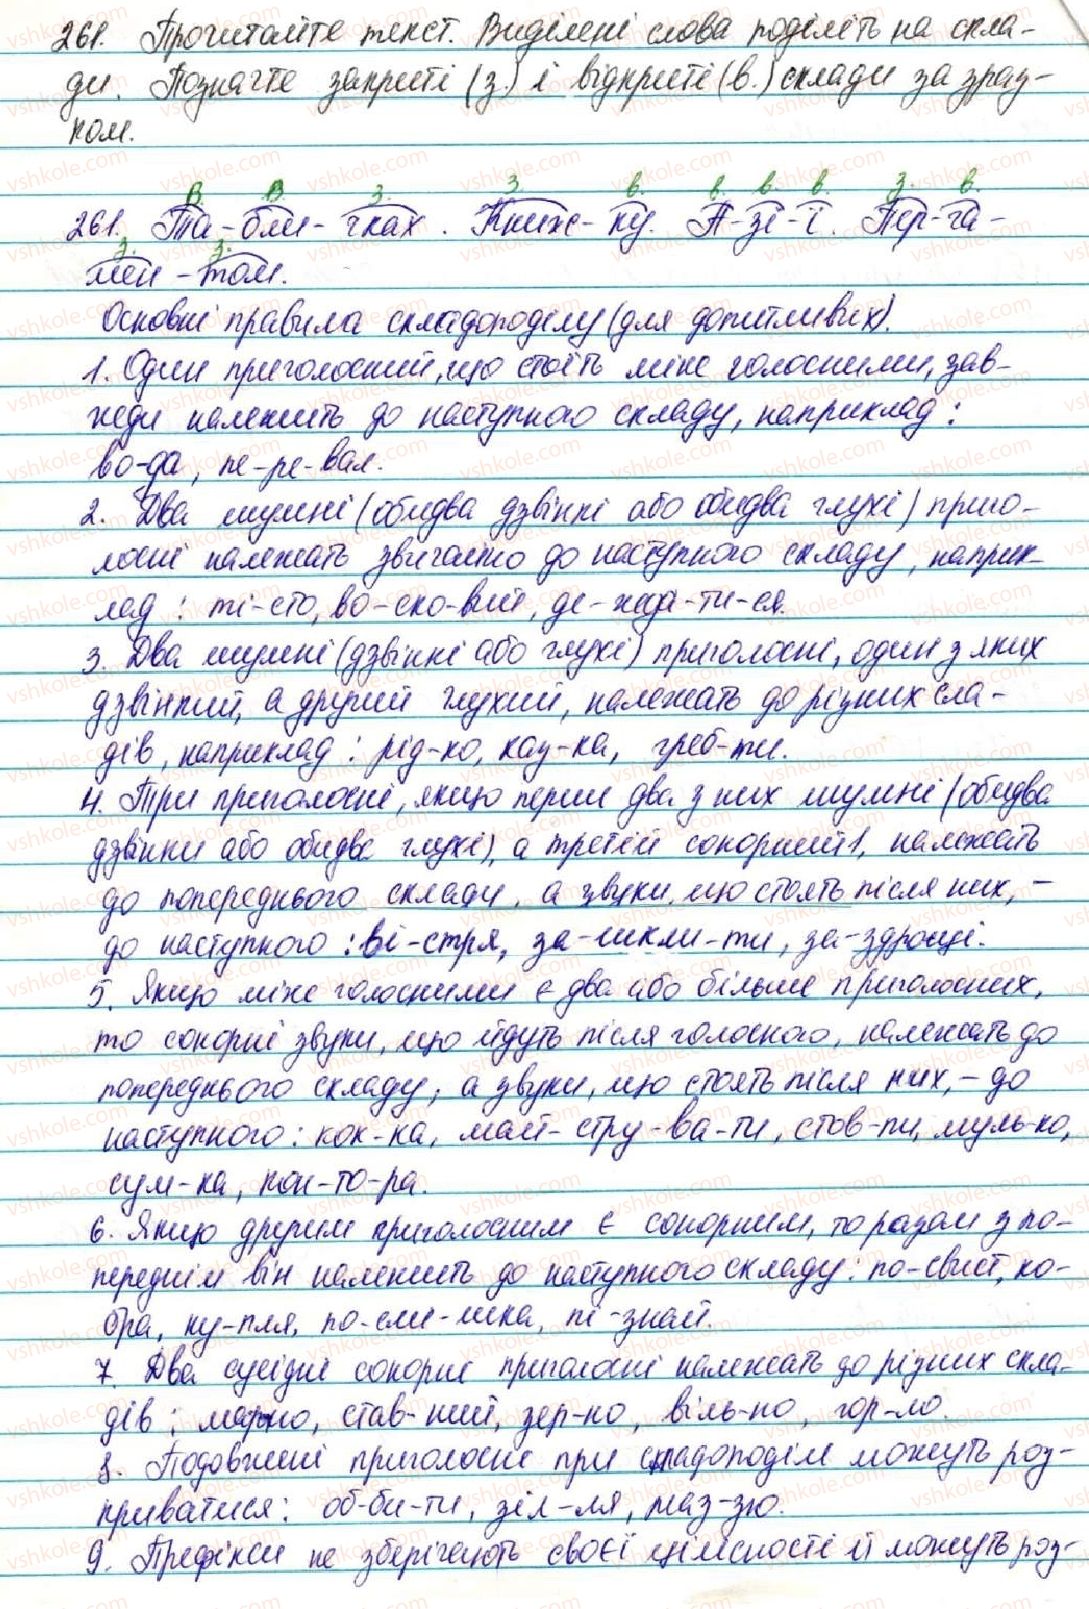 261. Прочитайте текст. Виділені слова поділіть на скла-
ди. Позначте закриті (з.) і відкриті (в.) склади за зраз-
ком.
в. в. з. з. в. в. в. в. з. в.
261. Та-бли-чках. Книж-ку. А-зі-ї. Пер-га-
з. з.
мен-том.
Основні правила складоподілу (для допитливих).
1. Один приголосний, що стоїть між голосними, зав-
жди належить до наступного складу, наприклад:
во-да, пе-ре-вал.
2. Два шумні (обидва дзвінкі або обидва глухі) приго-
лосні належать звичайно до наступного складу, наприк-
лад: ті-сто, во-ско-вий, де-жда-ти-ся.
3. Два шумні (дзвінкі або глухі) приголосні, один з яких
дзвінкий, а другий глухий, належать до різних сла-
дів, наприклад: рід-ко, каз-ка, греб-ти.
4. Три приголосні, якщо перші два з них шумні (обидва
дзвінки або обидва глухі), а третій сонорний, належать
до попереднього складу, а звуки, що стоять після них, -
до наступного: ві-стря, за-шкли-ти, за-здрощі.
5. Якщо між голосними є два або більше приголосних,
то сонорні звуки, що йдуть після голосного, належать до
попереднього складу, а звуки, що стоять після них, - до
наступного: кон-ка, май-стру-ва-ти, стов-пи, муль-ко,
сум-ка, кон-то-ра.
6. Якщо другим приголосним є сонорним, то разом з по-
переднім він належить до наступного складу: по-свист, ко-
бра, ку-пля, по-сми-шка, пі-знай.
7. Два сусідні сонорні приголосні належать до різних скла-
дів: марно, став-ний, зер-но, віль-но, гор-ло.
8. Подовжені приголосні при складоподілі можуть роз-
риватися: об-би-ти, зіл-ля, маз-зю.
9. Префікси не зберігають своєї цілісності й можуть роз-